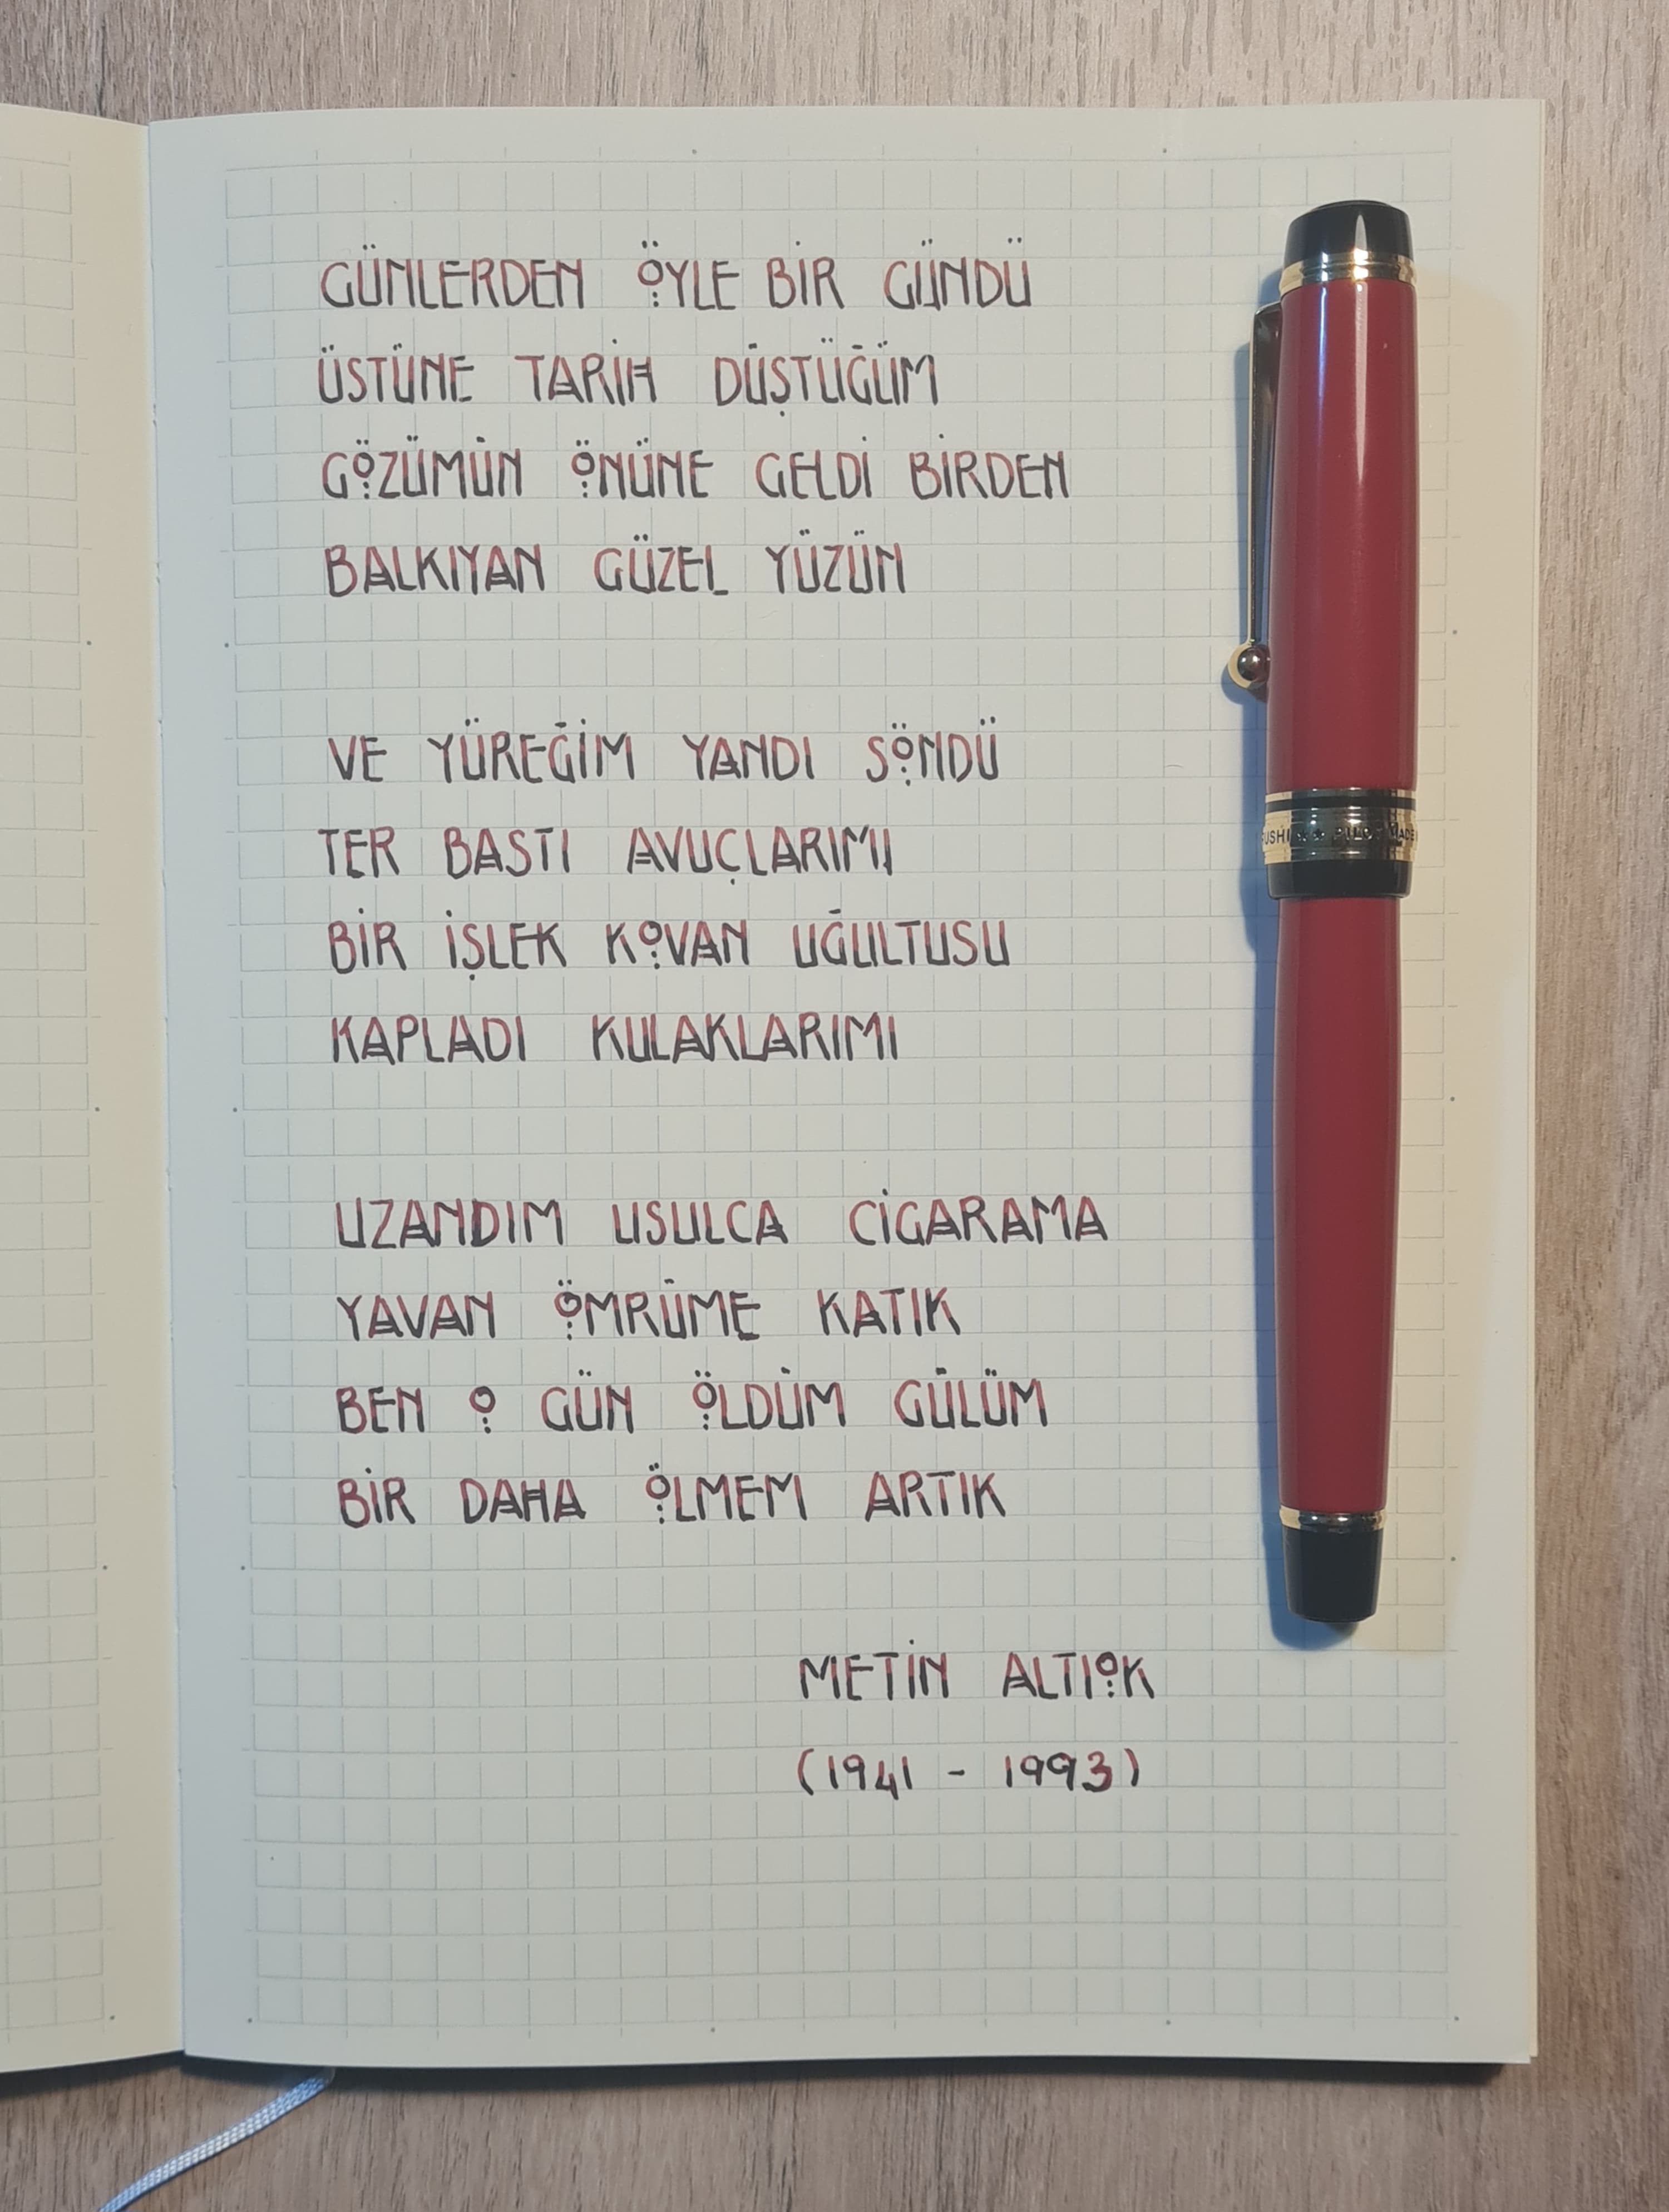 GÜNLERDEN ÖYLE BİR GÜNDÜ
ÜSTÜNE TARİH DÜŞTÜĞÜM
GÖZÜMÜN ÖNÜNE GELDİ BİRDEN
BALKIYAN GÜZEL YÜZÜN
VE YÜREĞİM YANDI SÖNDÜ
TER BASTI AVUÇLARIMI
BİR İŞLEK KOVAN UĞULTUSU
KAPLADI KULAKLARIMI
UZANDIM USULCA CİGARAMA
YAVAN ÖMRÜME KATIK
BEN O GÜN ÖLDÜM GÜLÜM
BİR DAHA ÖLMEM ARTIK
METİN ALTIOK
(1941 - 1993)
PILOT MADE